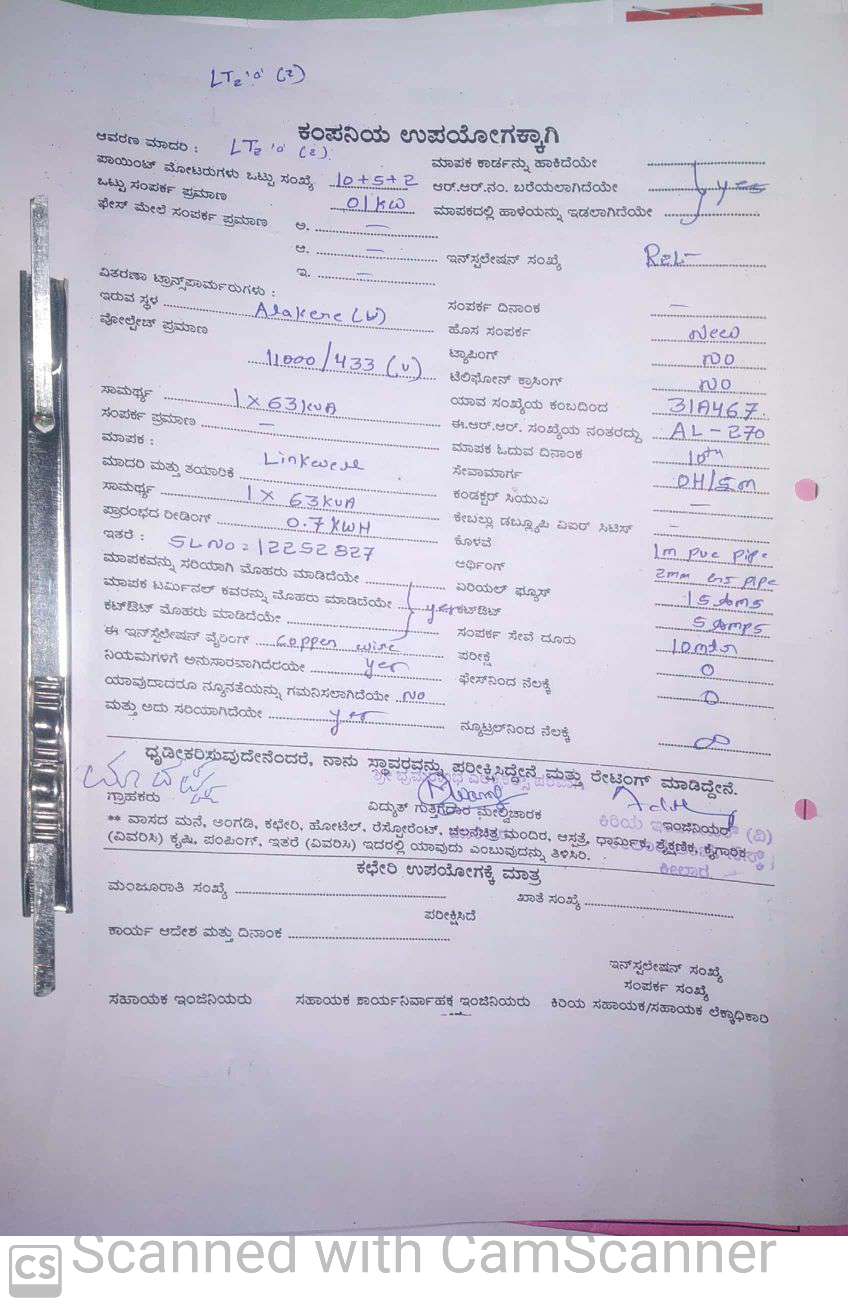 LT2 'a' (2)
ಕಂಪನಿಯ ಉಪಯೋಗಕ್ಕಾಗಿ
ಆವರಣ ಮಾದರಿ : LT2 'a' (2)
ಮಾಪಕ ಕಾರ್ಡನ್ನು ಹಾಕಿದೆಯೇ
ಪಾಯಿಂಟ್ ಮೋಟರುಗಳು ಒಟ್ಟು ಸಂಖ್ಯೆ 10+5+2 ಆರ್.ಆರ್.ನಂ. ಬರೆಯಲಾಗಿದೆಯೇ yes
ಒಟ್ಟು ಸಂಪರ್ಕ ಪ್ರಮಾಣ 01KW ಮಾಪಕದಲ್ಲಿ ಹಾಳೆಯನ್ನು ಇಡಲಾಗಿದೆಯೇ
ಫೇಸ್ ಮೇಲೆ ಸಂಪರ್ಕ ಪ್ರಮಾಣ ಅ. —
ಆ. — ಇನ್‌ಸ್ಟಲೇಷನ್ ಸಂಖ್ಯೆ
ಇ. —
ವಿತರಣಾ ಟ್ರಾನ್ಸ್‌ಪಾರ್ಮರುಗಳು :
ಇರುವ ಸ್ಥಳ Alakere (W) ಸಂಪರ್ಕ ದಿನಾಂಕ —
ವೋಲ್ಟೇಚ್ ಪ್ರಮಾಣ ಹೊಸ ಸಂಪರ್ಕ New
11000/433 (V) ಟ್ಯಾಪಿಂಗ್ NO
ಟೆಲಿಫೋನ್ ಕ್ರಾಸಿಂಗ್ NO
ಸಾಮರ್ಥ್ಯ 1 X 63KVA ಯಾವ ಸಂಖ್ಯೆಯ ಕಂಬದಿಂದ 31A467
ಸಂಪರ್ಕ ಪ್ರಮಾಣ — ಈ.ಆರ್.ಆರ್. ಸಂಖ್ಯೆಯ ನಂತರದ್ದು AL-270
ಮಾಪಕ : ಮಾಪಕ ಓದುವ ದಿನಾಂಕ 10th
ಮಾದರಿ ಮತ್ತು ತಯಾರಿಕೆ Linkwell ಸೇವಾಮಾರ್ಗ OH/Sm
ಸಾಮರ್ಥ್ಯ 1 X 63KVA ಕಂಡಕ್ಟರ್ ಸಿಯುವಿ —
ಪ್ರಾರಂಭದ ರೀಡಿಂಗ್ 0.7 KWH ಕೇಬಲ್ಲು ಡಬ್ಲ್ಯೂಪಿ ವಿಐರ್ ಸಿಟಿಸ್ —
ಇತರೆ : SLNO=12252827 ಕೊಳವೆ 1m PVC Pipe
ಮಾಪಕವನ್ನು ಸರಿಯಾಗಿ ಮೊಹರು ಮಾಡಿದೆಯೇ ಅರ್ಥಿಂಗ್ 2mm pipe
ಮಾಪಕ ಟರ್ಮಿನಲ್ ಕವರನ್ನು ಮೊಹರು ಮಾಡಿದೆಯೇ yes ಏರಿಯಲ್ ಫ್ಯೂಸ್ 15 Amps
ಕಟ್‌ಔಟ್ ಮೊಹರು ಮಾಡಿದೆಯೇ ಕಟ್‌ಔಟ್ 5 Amps
ಈ ಇನ್‌ಸ್ಟಲೇಷನ್ ವೈರಿಂಗ್ Copper wire ಸಂಪರ್ಕ ಸೇವೆ ದೂರು 10mtr
ನಿಯಮಗಳಿಗೆ ಅನುಸಾರವಾಗಿದೆರಯೇ yes ಪರೀಕ್ಷೆ 0
ಯಾವುದಾದರೂ ನ್ಯೂನತೆಯನ್ನು ಗಮನಿಸಲಾಗಿದೆಯೇ NO ಫೇಸ್‌ನಿಂದ ನೆಲಕ್ಕೆ 0
ಮತ್ತು ಅದು ಸರಿಯಾಗಿದೆಯೇ yes ನ್ಯೂಟ್ರಲ್‌ನಿಂದ ನೆಲಕ್ಕೆ ∞
ಧೃಡೀಕರಿಸುವುದೇನೆಂದರೆ, ನಾನು ಸ್ಥಾವರವನ್ನು ಪರೀಕ್ಷಿಸಿದ್ದೇನೆ ಮತ್ತು ರೇಟಿಂಗ್ ಮಾಡಿದ್ದೇನೆ.
ಗ್ರಾಹಕರು ವಿದ್ಯುತ್ ಗುತ್ತಿಗೆದಾರ ಮೇಲ್ವಿಚಾರಕ ಕಿರಿಯ ಇಂಜಿನಿಯರ್ (ವಿ)
** ವಾಸದ ಮನೆ, ಅಂಗಡಿ, ಕಛೇರಿ, ಹೋಟೆಲ್, ರೆಸ್ಟೋರೆಂಟ್, ಚಲನಚಿತ್ರ ಮಂದಿರ, ಆಸ್ಪತ್ರೆ, ಧಾರ್ಮಿಕ, ಶೈಕ್ಷಣಿಕ, ಕೈಗಾರಿಕ
(ವಿವರಿಸಿ) ಕೃಷಿ, ಪಂಪಿಂಗ್, ಇತರೆ (ವಿವರಿಸಿ) ಇದರಲ್ಲಿ ಯಾವುದು ಎಂಬುವುದನ್ನು ತಿಳಿಸಿರಿ.
ಕೀಲಾರ
ಕಛೇರಿ ಉಪಯೋಗಕ್ಕೆ ಮಾತ್ರ
ಮಂಜೂರಾತಿ ಸಂಖ್ಯೆ ಖಾತೆ ಸಂಖ್ಯೆ
ಪರೀಕ್ಷಿಸಿದೆ
ಕಾರ್ಯ ಆದೇಶ ಮತ್ತು ದಿನಾಂಕ
ಇನ್‌ಸ್ಟಲೇಷನ್ ಸಂಖ್ಯೆ
ಸಂಪರ್ಕ ಸಂಖ್ಯೆ
ಸಹಾಯಕ ಇಂಜಿನಿಯರು ಸಹಾಯಕ ಕಾರ್ಯನಿರ್ವಾಹಕ ಇಂಜಿನಿಯರು ಕಿರಿಯ ಸಹಾಯಕ/ಸಹಾಯಕ ಲೆಕ್ಕಾಧಿಕಾರಿ
CS Scanned with CamScanner